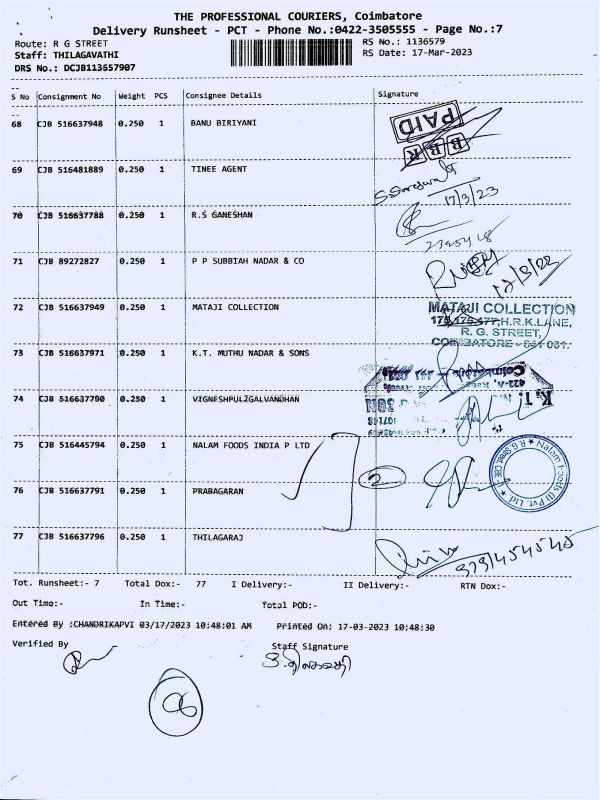 THE PROFESSIONAL COURIERS, Coimbatore
Delivery Runsheet - PCT - Phone No.:0422-3505555 - Page No.:7
Route: R G STREET RS No.: 1136579
Staff: THILAGAVATHI RS Date: 17-Mar-2023
DRS No.: DCJB113657907
S No Consignment No Weight PCS Consignee Details Signature
68 CJB 516637948 0.250 1 BANU BIRIYANI
PAID
BBR
69 CJB 516481889 0.250 1 TINEE AGENT
17/3/23
70 CJB 516637788 0.250 1 R.S GANESHAN
71 CJB 89272827 0.250 1 P P SUBBIAH NADAR & CO
17/3/23
72 CJB 516637949 0.250 1 MATAJI COLLECTION
MATAJI COLLECTION
175,176,177,H.R.K.LANE,
R. G. STREET,
COIMBATORE - 641 001.
73 CJB 516637971 0.250 1 K.T. MUTHU NADAR & SONS
K.T.
74 CJB 516637790 0.250 1 VIGNESHPULZGALVANDHAN
75 CJB 516445794 0.250 1 NALAM FOODS INDIA P LTD
2
76 CJB 516637791 0.250 1 PRABAGARAN
77 CJB 516637796 0.250 1 THILAGARAJ
Tot. Runsheet:- 7 Total Dox:- 77 I Delivery:- II Delivery:- RTN Dox:-
Out Time:- In Time:- Total POD:-
Entered By :CHANDRIKAPVI 03/17/2023 10:48:01 AM Printed On: 17-03-2023 10:48:30
Verified By Staff Signature